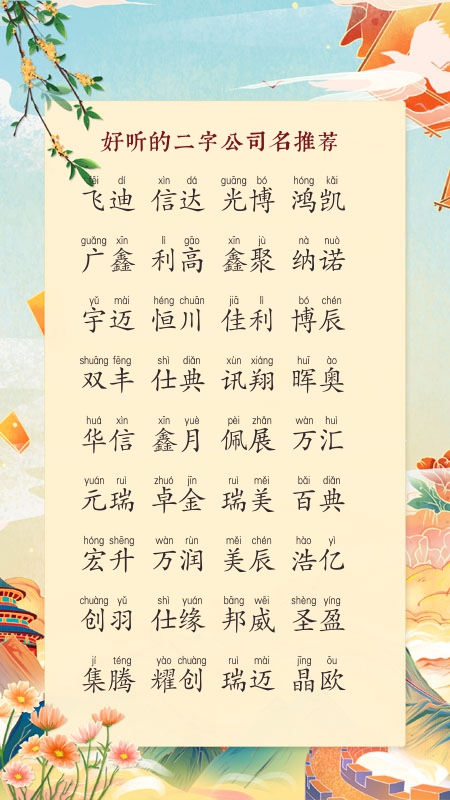 好听的二字公司名推荐
fēi dí xìn dá guāng bó hóng kǎi
飞迪 信达 光博 鸿凯
guǎng xīn lì gāo xīn jù nà nuò
广鑫 利高 鑫聚 纳诺
yǔ mài héng chuān jiā lì bó chén
宇迈 恒川 佳利 博辰
shuāng fēng shì diǎn xùn xiáng huī ào
双丰 仕典 讯翔 晖奥
huá xìn xīn yuè pèi zhǎn wàn huì
华信 鑫月 佩展 万汇
yuán ruì zhuó jīn ruì měi bǎi diǎn
元瑞 卓金 瑞美 百典
hóng shēng wàn rùn měi chén hào yì
宏升 万润 美辰 浩亿
chuàng yǔ shì yuán bāng wēi shèng yíng
创羽 仕缘 邦威 圣盈
jí téng yào chuàng ruì mài jīng ōu
集腾 耀创 瑞迈 晶欧